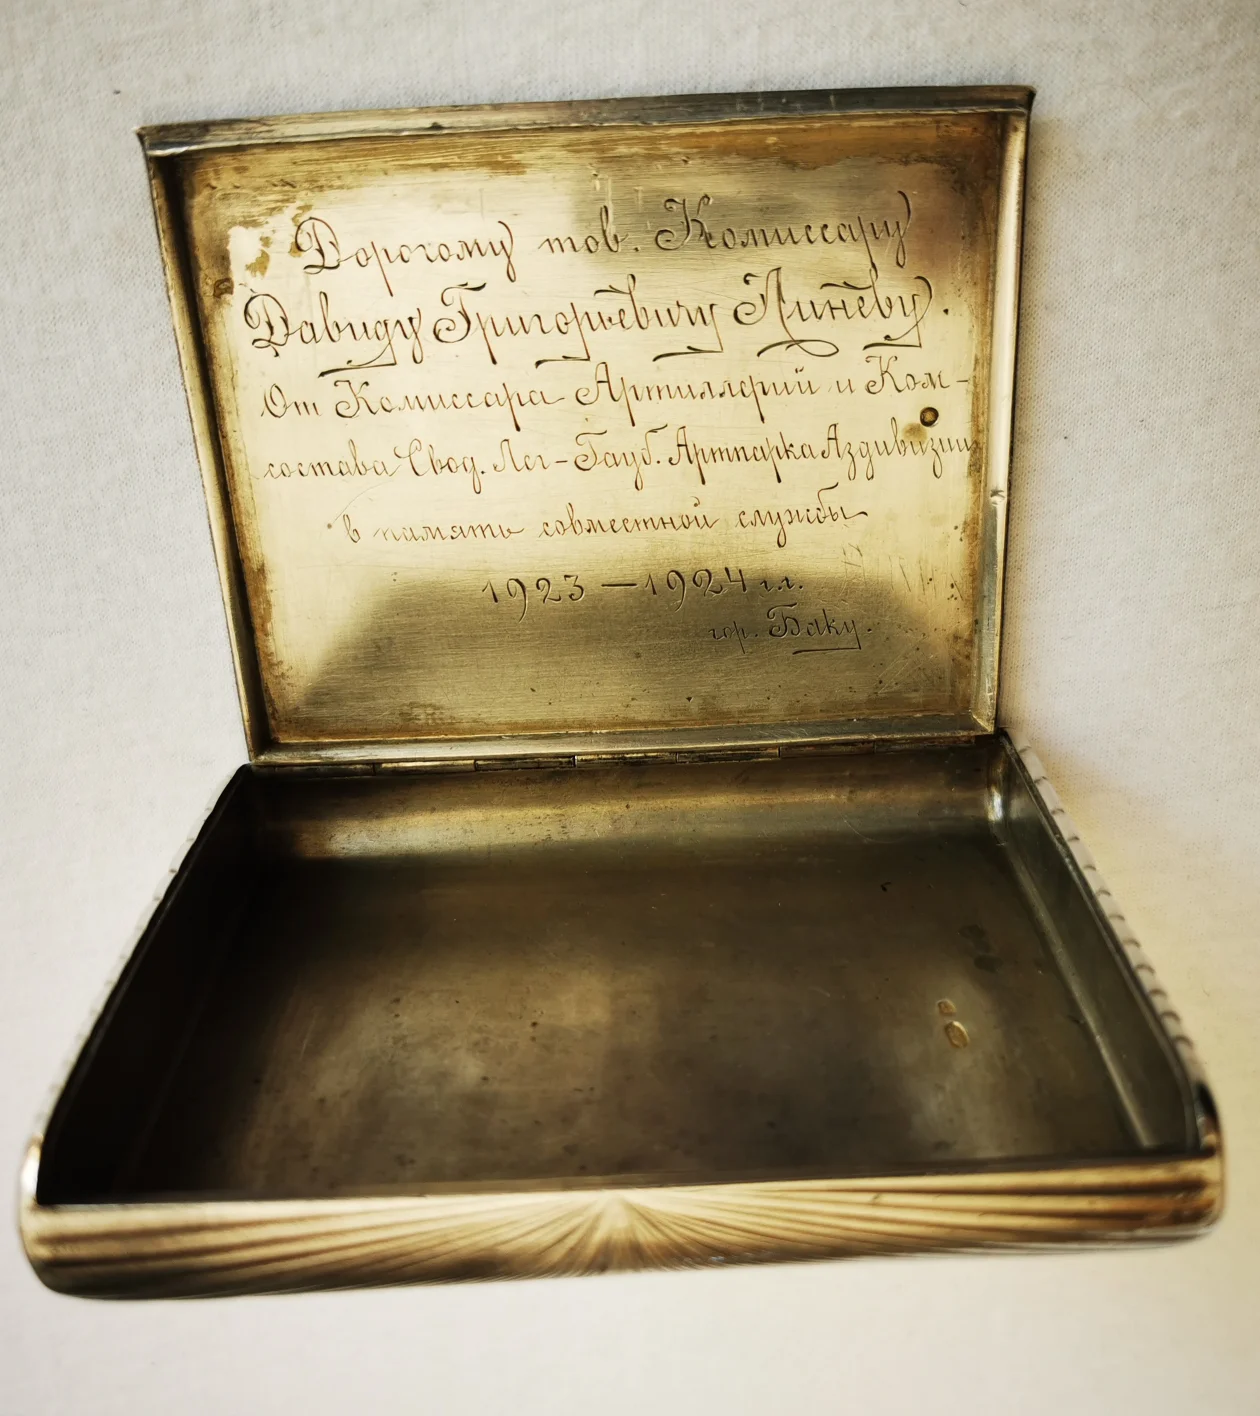 Дорогому тов. Комиссару
Давиду Григорьевичу Линёву.
От Комиссара Артиллерий и Ком-
состава Свод. Лег-Гауб. Артпарка Аздивизии
в память совместной службы
1923 — 1924 г.г.
гор. Баку.